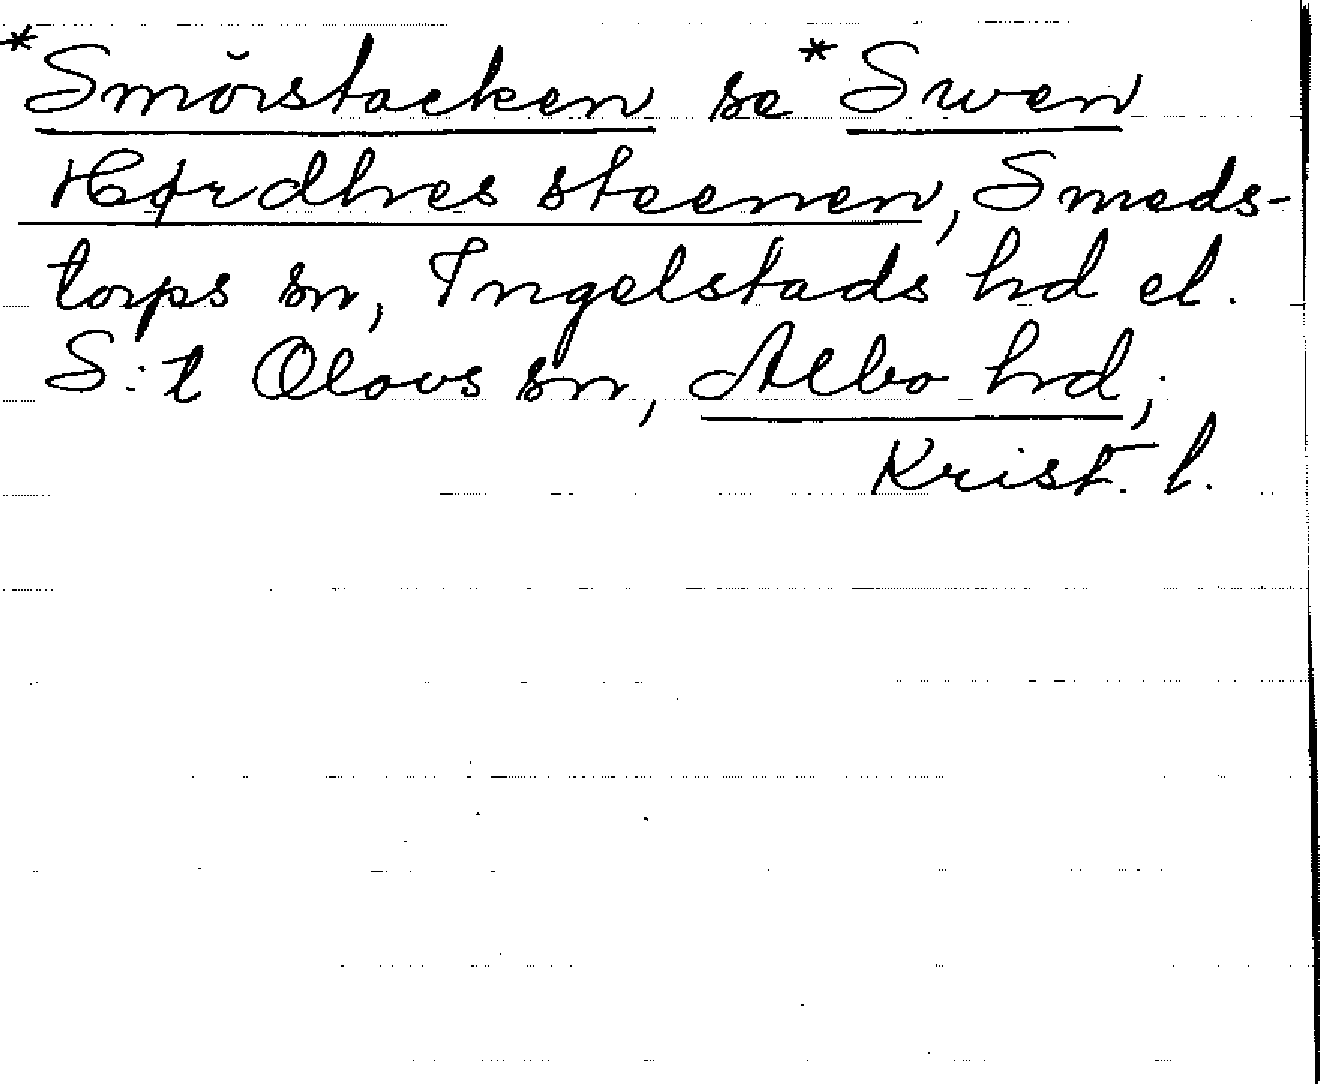 *Smörstacken se *Swen
Hørdhes steenen, Smeds-
torps sn, Ingelstads hd el.
S:t Olovs sn, Albo hd,
Krist. l.